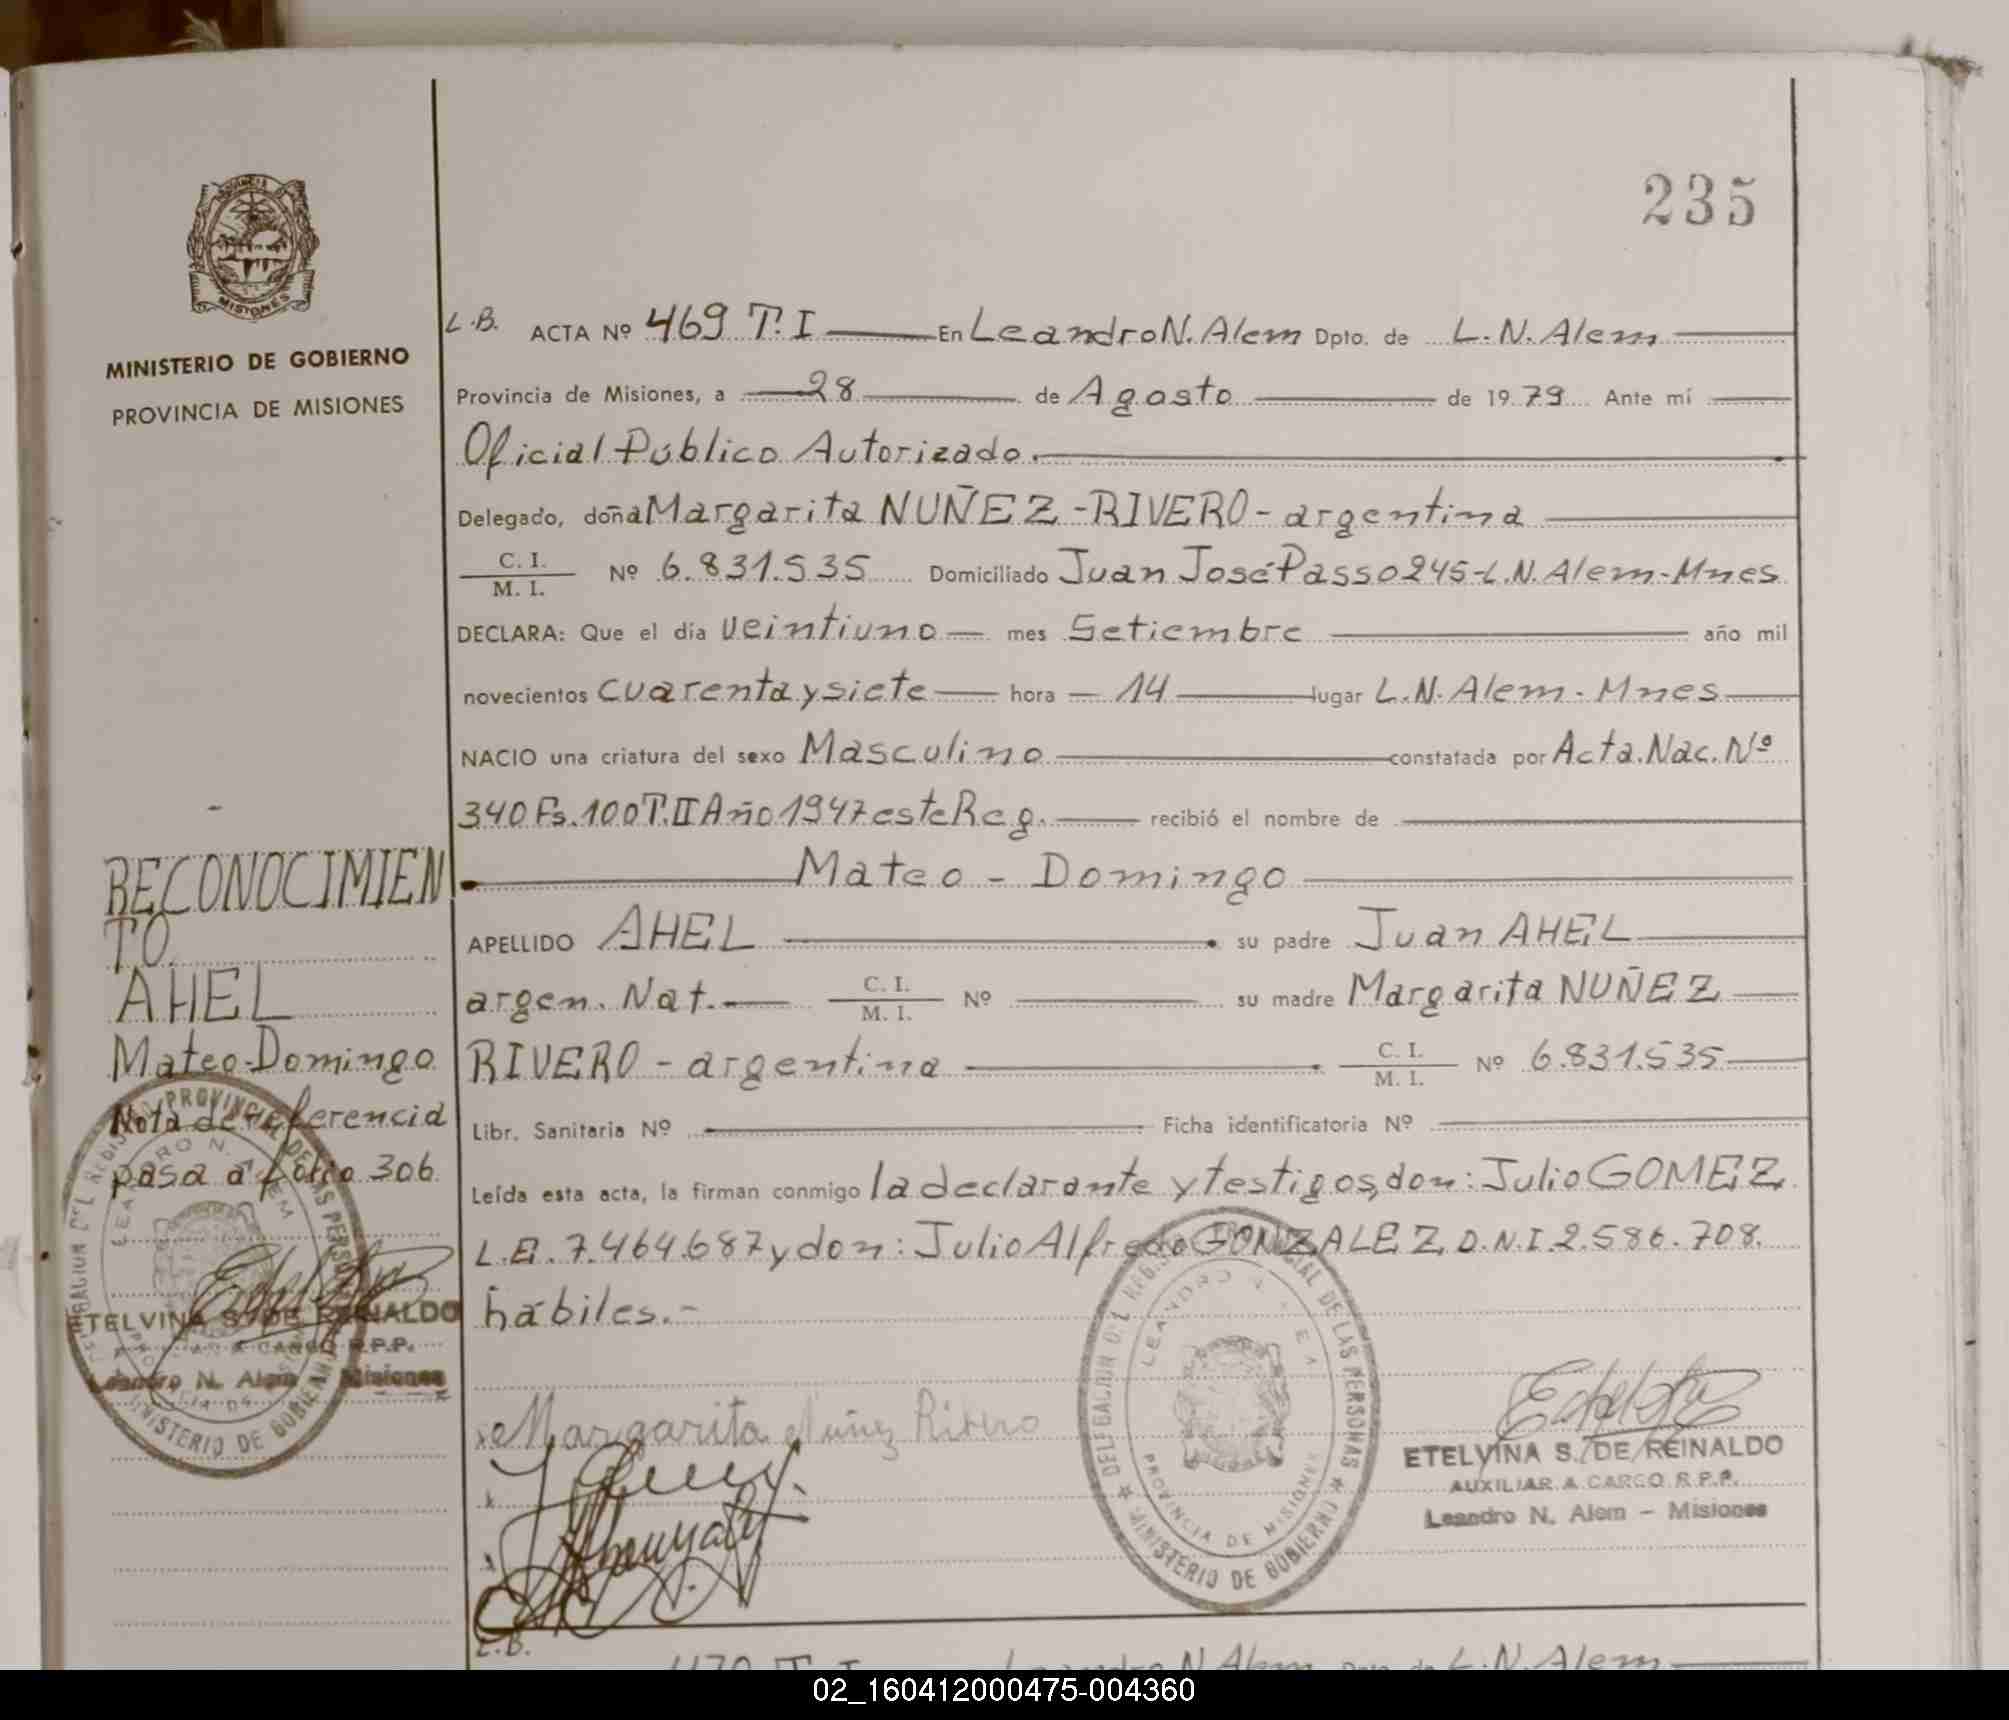 235
PROVINCIA
MISIONES
MINISTERIO DE GOBIERNO
PROVINCIA DE MISIONES
RECONOCIMIEN
TO
AHEL
Mateo-Domingo
Nota de referencia
pasa a folio 306.
ETELVINA S. DE REINALDO
A CARGO R.P.P.
Leandro N. Alem Misiones
L.B. ACTA Nº 469 T. I En Leandro N. Alem Dpto. de L. N. Alem
Provincia de Misiones, a 28 de Agosto de 1979 Ante mí
Oficial Público Autorizado.
Delegado, doña Margarita NUÑEZ - RIVERO - argentina
C. I.
M. I. Nº 6.831.535 Domiciliado Juan José Passo 245-L.N. Alem-Mnes
DECLARA: Que el día veintiuno mes Setiembre año mil
novecientos cuarenta y siete hora 14 lugar L.N. Alem - Mnes
NACIO una criatura del sexo Masculino constatada por Acta. Nac. Nº
340 Fs. 100 T. II Año 1947 este Reg. recibió el nombre de
Mateo - Domingo
APELLIDO AHEL su padre Juan AHEL
argen. Nat. C. I. M. I. Nº su madre Margarita NUÑEZ
RIVERO - argentina C. I. M. I. Nº 6.831.535
Libr. Sanitaria Nº Ficha identificatoria Nº
Leída esta acta, la firman conmigo la declarante y testigos, don: Julio GOMEZ
L.E. 7.464.687 y don: Julio Alfredo GONZALEZ D.N.I. 2.586.708.
hábiles.-
Margarita Nuñez Rivero
DELEGACION DEL REGISTRO PROVINCIAL DE LAS PERSONAS
LEANDRO N. ALEM
PROVINCIA DE MISIONES
MINISTERIO DE GOBIERNO
ETELVINA S. DE REINALDO
AUXILIAR A CARGO R.P.P.
Leandro N. Alem - Misiones
L.B.
470 T. I Leandro N. Alem Dpto. de L. N. Alem
02_160412000475-004360